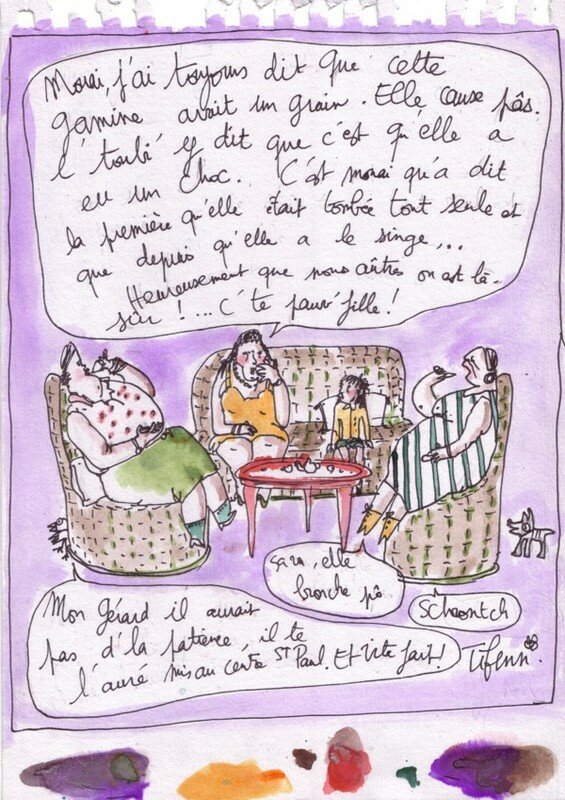 Mouai, j'ai toujours dit que cette
gamine avait un grain. Elle cause pâs.
l' toubi y dit que c'est qu'elle a
eu un choc. C'est mouai qu'a dit
la première qu'elle était tombée tout seule et
que depuis qu'elle a le singe,...
Heureusement que nous aûtres on est là.
sûr !... C'te pauv' fille !
ça va, elle
bronche pô.
Schrontch
Mon Gérard il aurait
pas d'la patience, il te
l'auré mis au centre St Paul. Et Vite fait !
Tifenn